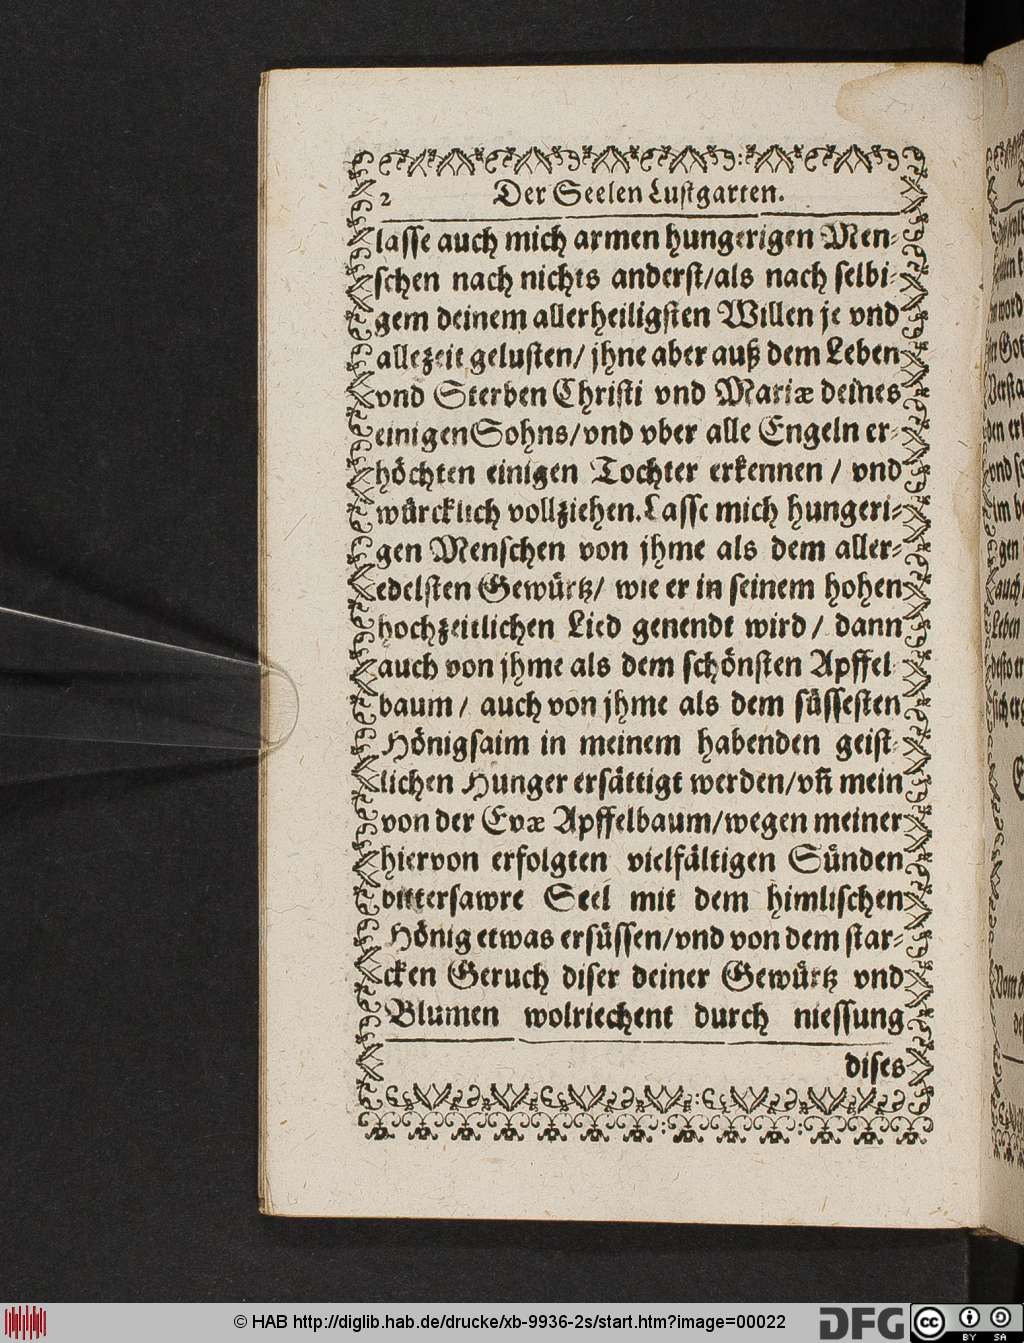 2 Der Seelen Lustgarten.
lasse auch mich armen hungerigen Men-
schen nach nichts anderst/als nach selbi-
gem deinem allerheiligsten Willen je vnd
allezeit gelusten/ jhne aber auß dem Leben
vnd Sterben Christi vnd Mariæ deines
einigen Sohns/vnd vber alle Engeln er-
höchten einigen Tochter erkennen / vnd
würcklich vollziehen. Lasse mich hungeri-
gen Menschen von jhme als dem aller-
edelsten Gewürtz/ wie er in seinem hohen
hochzeitlichen Lied genendt wird / dann
auch von jhme als dem schönsten Apffel-
baum / auch von jhme als dem süssesten
Hönigsaim in meinem habenden geist-
lichen Hunger ersättigt werden/vñ mein
von der Evæ Apffelbaum/wegen meiner
hiervon erfolgten vielfältigen Sünden
bittersawre Seel mit dem himlischen
Hönig etwas ersüssen/vnd von dem star-
cken Geruch diser deiner Gewürtz vnd
Blumen wolriechent durch niessung
dises
© HAB http://diglib.hab.de/drucke/xb-9936-2s/start.htm?image=00022
DFG
cc
BY SA